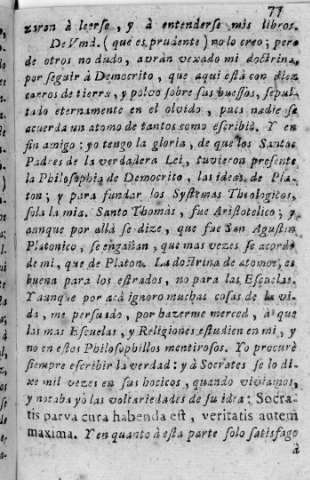 77
zaràn à leerse, y à entenderse mis libros.
De Vmd. (que es prudente) no lo creo; pero
de otros no dudo, avràn vexado mi doctrina,
por seguir à Democrito, que aqui està con diez
carros de tierra, y polvo sobre sus huessos, sepul-
tado eternamente en el olvido, pues nadie se
acuerda un atomo de tantos como escribiò. Y en
fin amigo: yo tengo la gloria, de que los Santos
Padres de la verdadera Lei, tuvieron presente
la Philosophia de Democrito, las ideas de Pla-
ton; y para fundar los Systemas Theologicos,
sola la mia. Santo Thomàs, fue Aristotelico; y
aunque por allà se dize, que fue San Agustin
Platonico, se engañan, que mas vezes se acordò
de mi, que de Platon. La doctrina de atomos, es
buena para los estrados, no para las Escuelas.
Y aunque por acà ignoro muchas cosas de la vi-
da, me persuado, por hazerme merced, à que
las mas Escuelas, y Religiones estudien en mi, y
no en estos Philosophillos mentirosos. Yo procurè
siempre escribir la verdad: y à Socrates se lo di-
xe mil vezes en sus hocicos, quando viviamos,
y notaba yo las voltariedades de su idea: Socra-
tis parva cura habenda est, veritatis autem
maxima. Y en quanto à esta parte solo satisfago
à